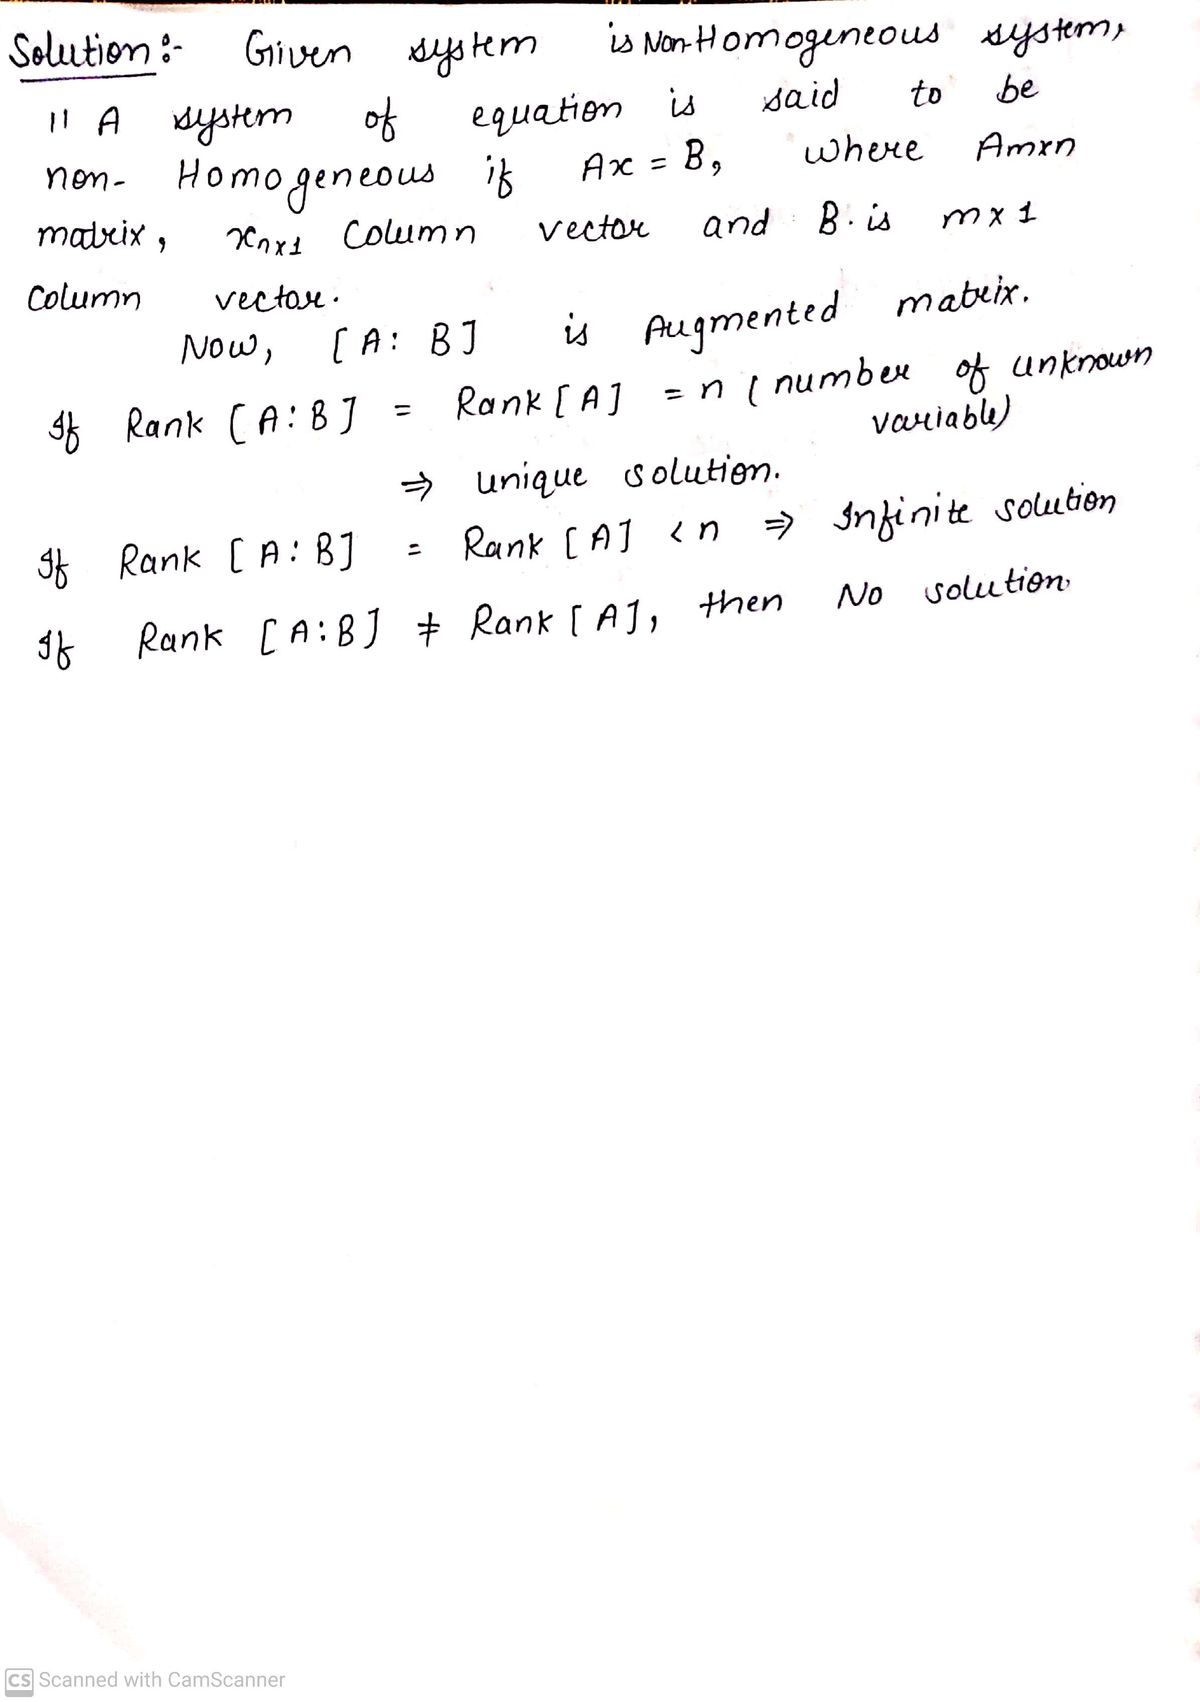 Solution :- Given system is Non-Homogeneous system,
" A system of equation is said to be
non- Homogeneous if Ax = B, where Amxn
matrix, xnx1 Column vector and B is mx1
Column vector.
Now, [A: B] is Augmented matrix.
If Rank [A:B] = Rank [A] = n (number of unknown
variable)
⇒ unique solution.
If Rank [A:B] = Rank [A] < n ⇒ Infinite solution
If Rank [A:B] ≠ Rank [A], then No solution.
CS Scanned with CamScanner